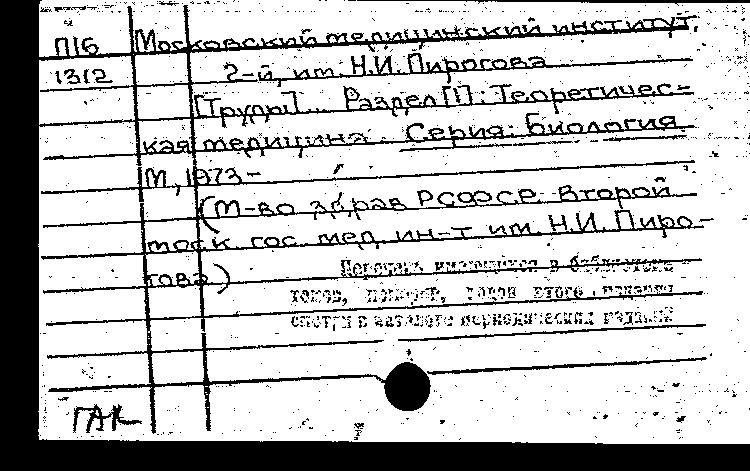 П16 Московский медицинский институт,
1312 2-й, им. Н.И. Пирогова
[Труды]... Раздел [1]: Теоретичес-
кая медицина. Серия: Биология
М., 1973-
(М-во здрав РСФСР. Второй
моск гос. мед. ин-т им. Н.И. Пиро-
гова.)
Перечень имеющихся в библиотеке
томов, номеров, годов этого издания
смотри в каталоге периодических изданий
ГАК